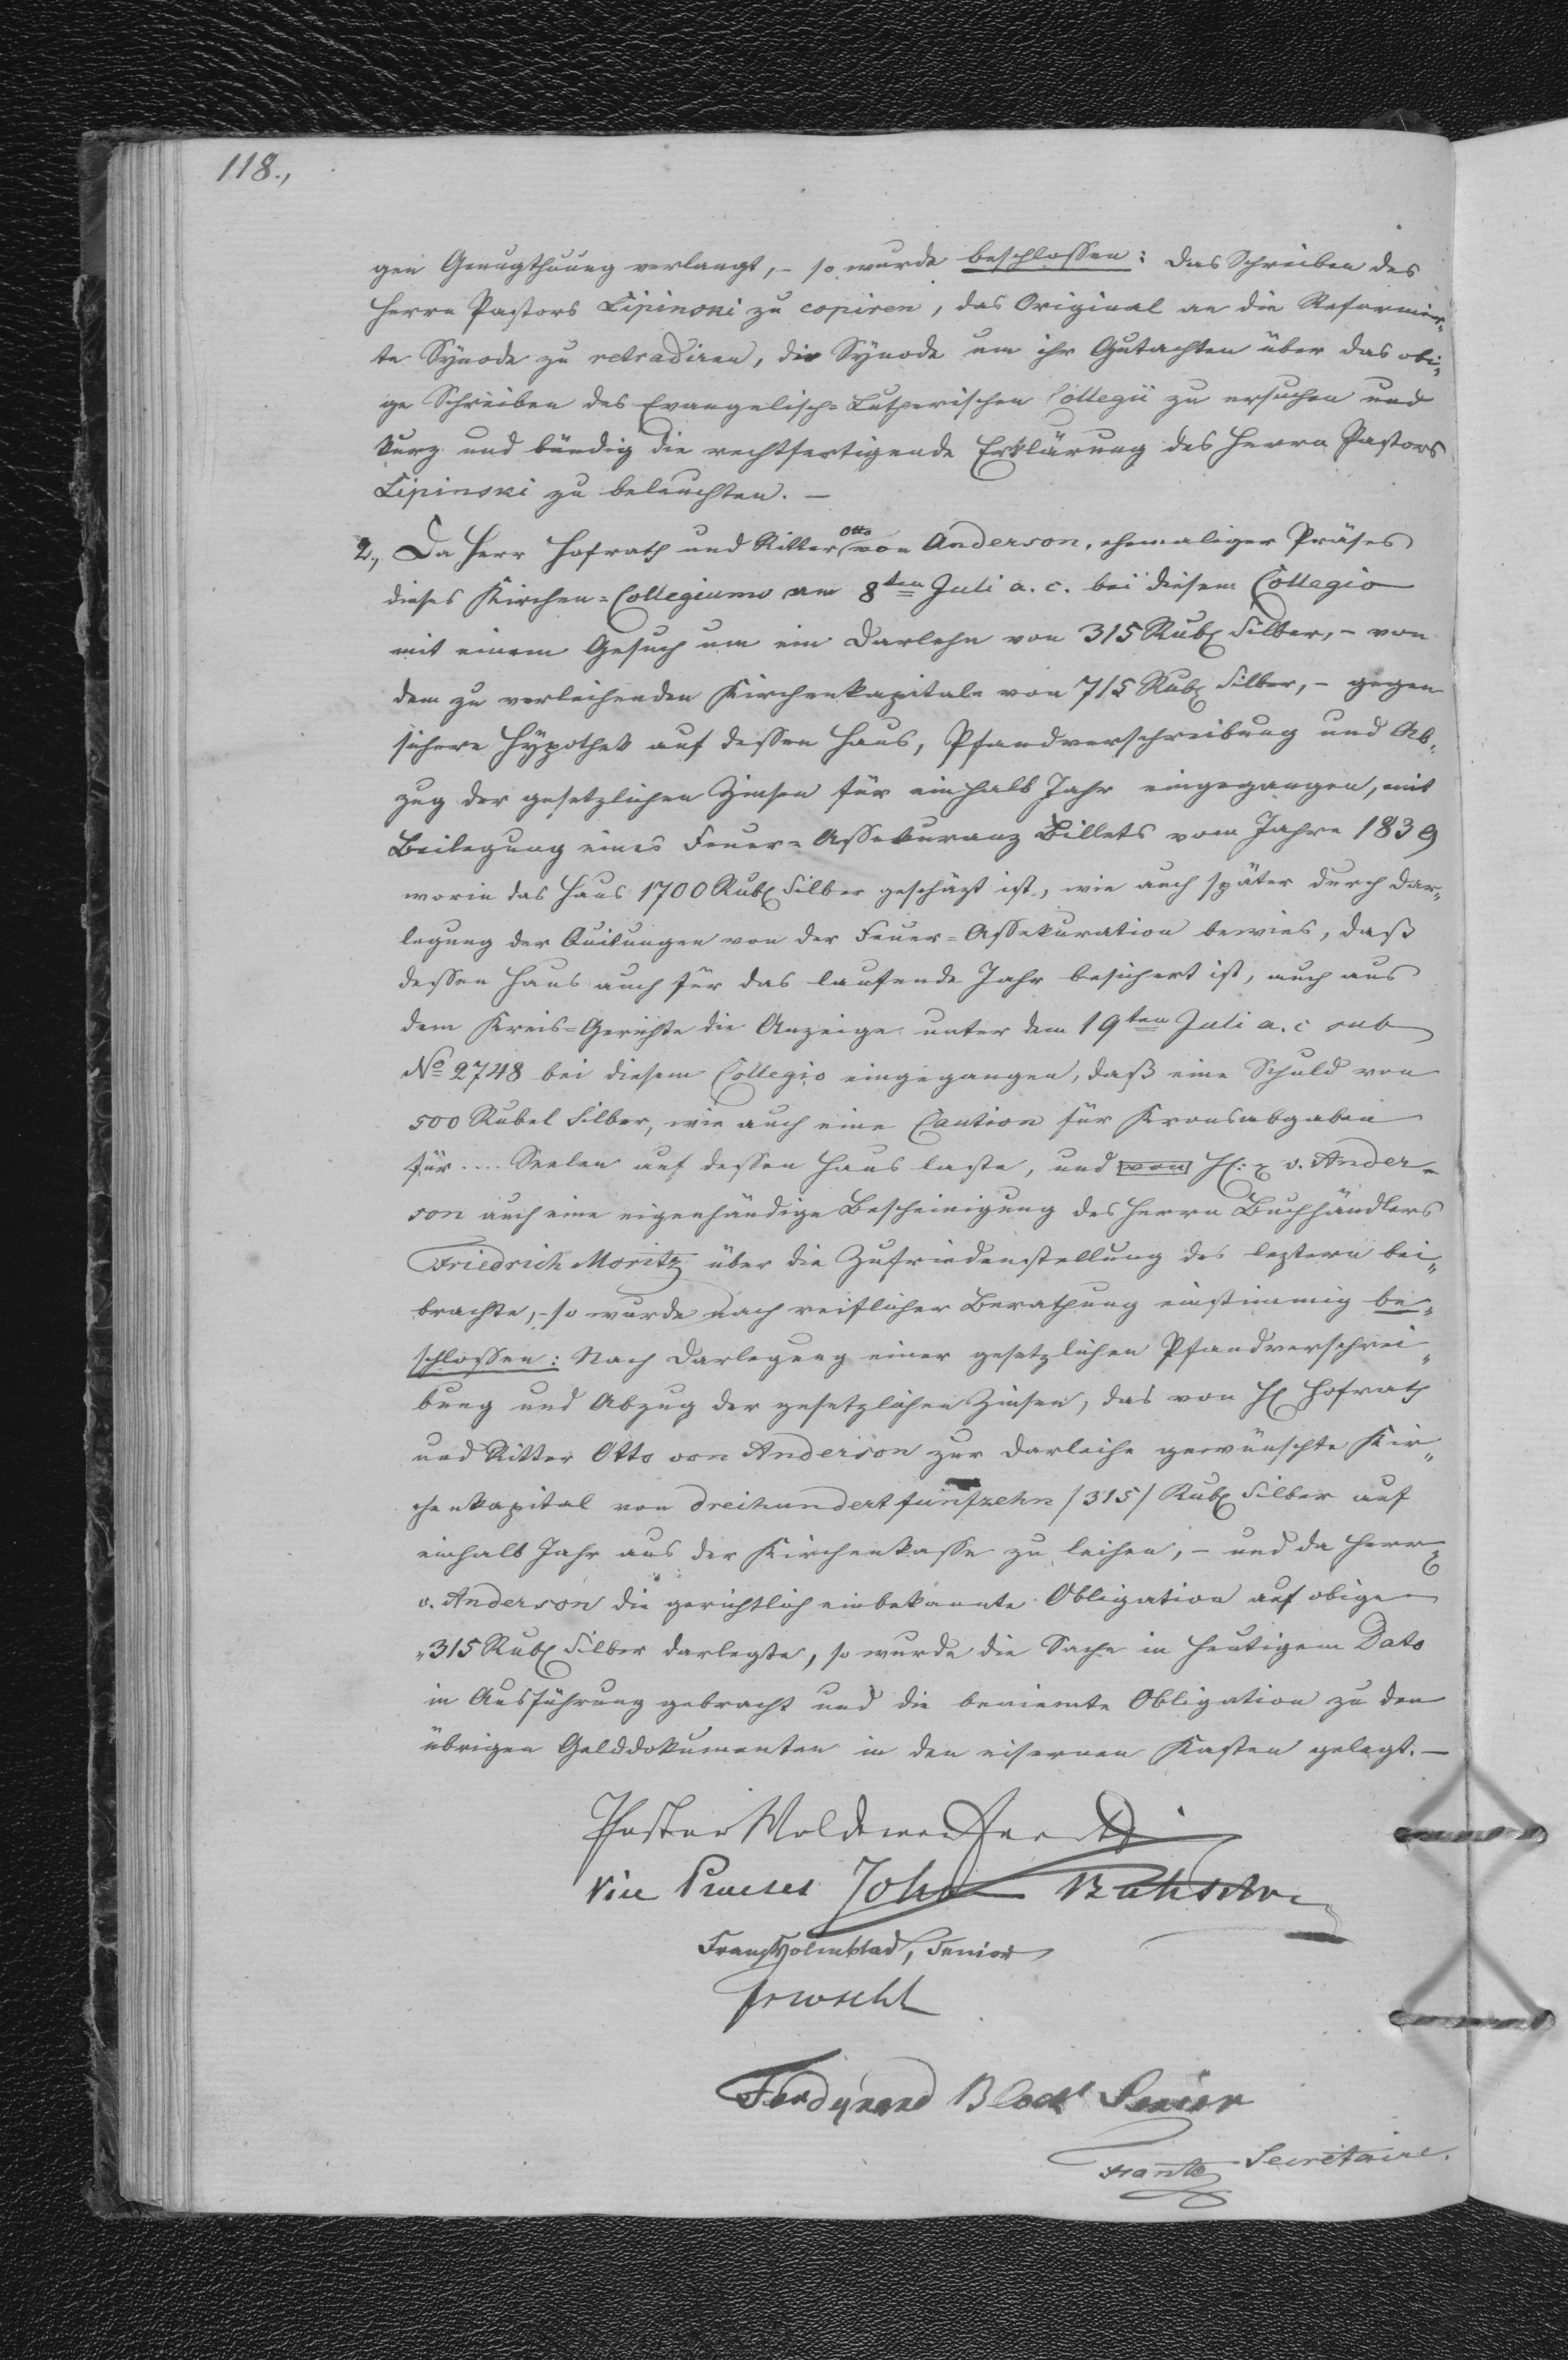 118.,
gen Genugthuung verlangt, – so wurde beschlossen: Das Schreiben des
Herrn Pastors Lipinski zu copiren, das Original an die Reformir„
te Synode zu retradiren, die Synode um ihr Gutachten über das obi„
ge Schreiben des Evangelisch=Lutherischen Collegii zu ersuchen und
kurz und bündig die rechtfertigende Erklärung des Herrn Pastors
Lipinski zu beleuchten. –
2., Da Herr Hofrath und Ritter Otto von Anderson, ehemaliger Präses
dieses Kirchen=Collegiums am 8ten Juli a. c. bei diesem Collegio
mit einem Gesuch um ein Darlehn von 315 Rub. Silber, – von
dem zu verleihenden Kirchenkapitale von 715 Rub. Silber, – gegen
sichere Hypothek auf dessen Haus, Pfandverschreibung und Ab„
zug der gesetzlichen Zinsen für einhalb Jahr eingegangen, mit
Beilegung eines Feuer=Assekuranz Billets vom Jahre 1839
worin das Haus 1700 Rub. Silber geschäzt ist, wie auch später durch Dar„
legung der Quitungen von der Feuer=Assekuration bewies, daß
dessen Haus auch für das laufende Jahr besichert ist, auch aus
dem Kreis=Gerichte die Anzeige unter dem 19ten Juli a. c sub
No 2748 bei diesem Collegio eingegangen, daß eine Schuld von
500 Rubel Silber, wie auch eine Caution für Kronsabgaben
für .... Seelen auf dessen Haus laste, und von H: v. Ander„
son auch eine eigenhändige Bescheinigung des Herrn Buchhändlers
Friedrich Moritz über die Zufriedenstellung des leztern bei„
brachte, – so wurde nach reiflicher Berathung einstimmig be„
schlossen: Nach Darlegung einer gesetzlichen Pfandverschrei„
bung und Abzug der gesetzlichen Zinsen, das von H. Hofrath
und Ritter Otto von Anderson zur Darleihe gewünschte Kir„
chenkapital von dreihundert funfzehn /315/ Rub. Silber auf
einhalb Jahr aus der Kirchenkasse zu leihen, – und da Herr
v. Anderson die gerichtlich einbekannte Obligation auf obige
315 Rub. Silber darlegte, so wurde die Sache in heutigem Dato
in Ausführung gebracht und die benannte Obligation zu den
übrigen Gelddokumenten in den eisernen Kasten gelegt. –
Pastor Woldemar
Vice Praeses John
Franz Holmblad, Senior
Ferdynand Block Senior
Frantz Secretaire.